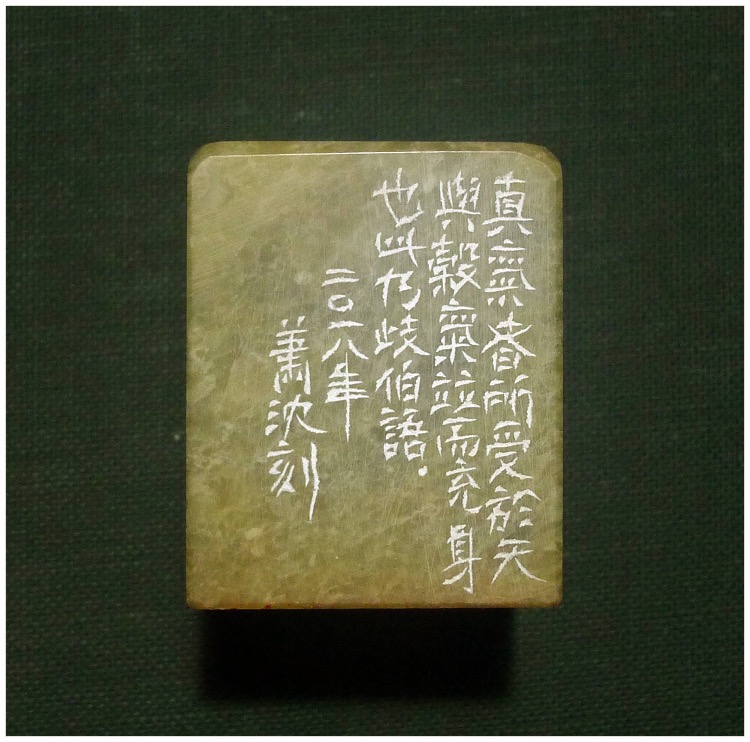 真氣者所受於天
與穀氣並而充身
也此乃歧伯語.
二〇一八年
蕭沈刻